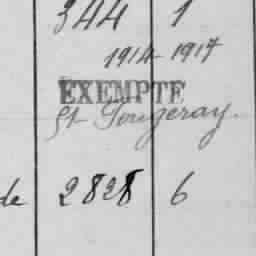 344 1
1914-1917
EXEMPTE
St Fougeray.
de 2828 6